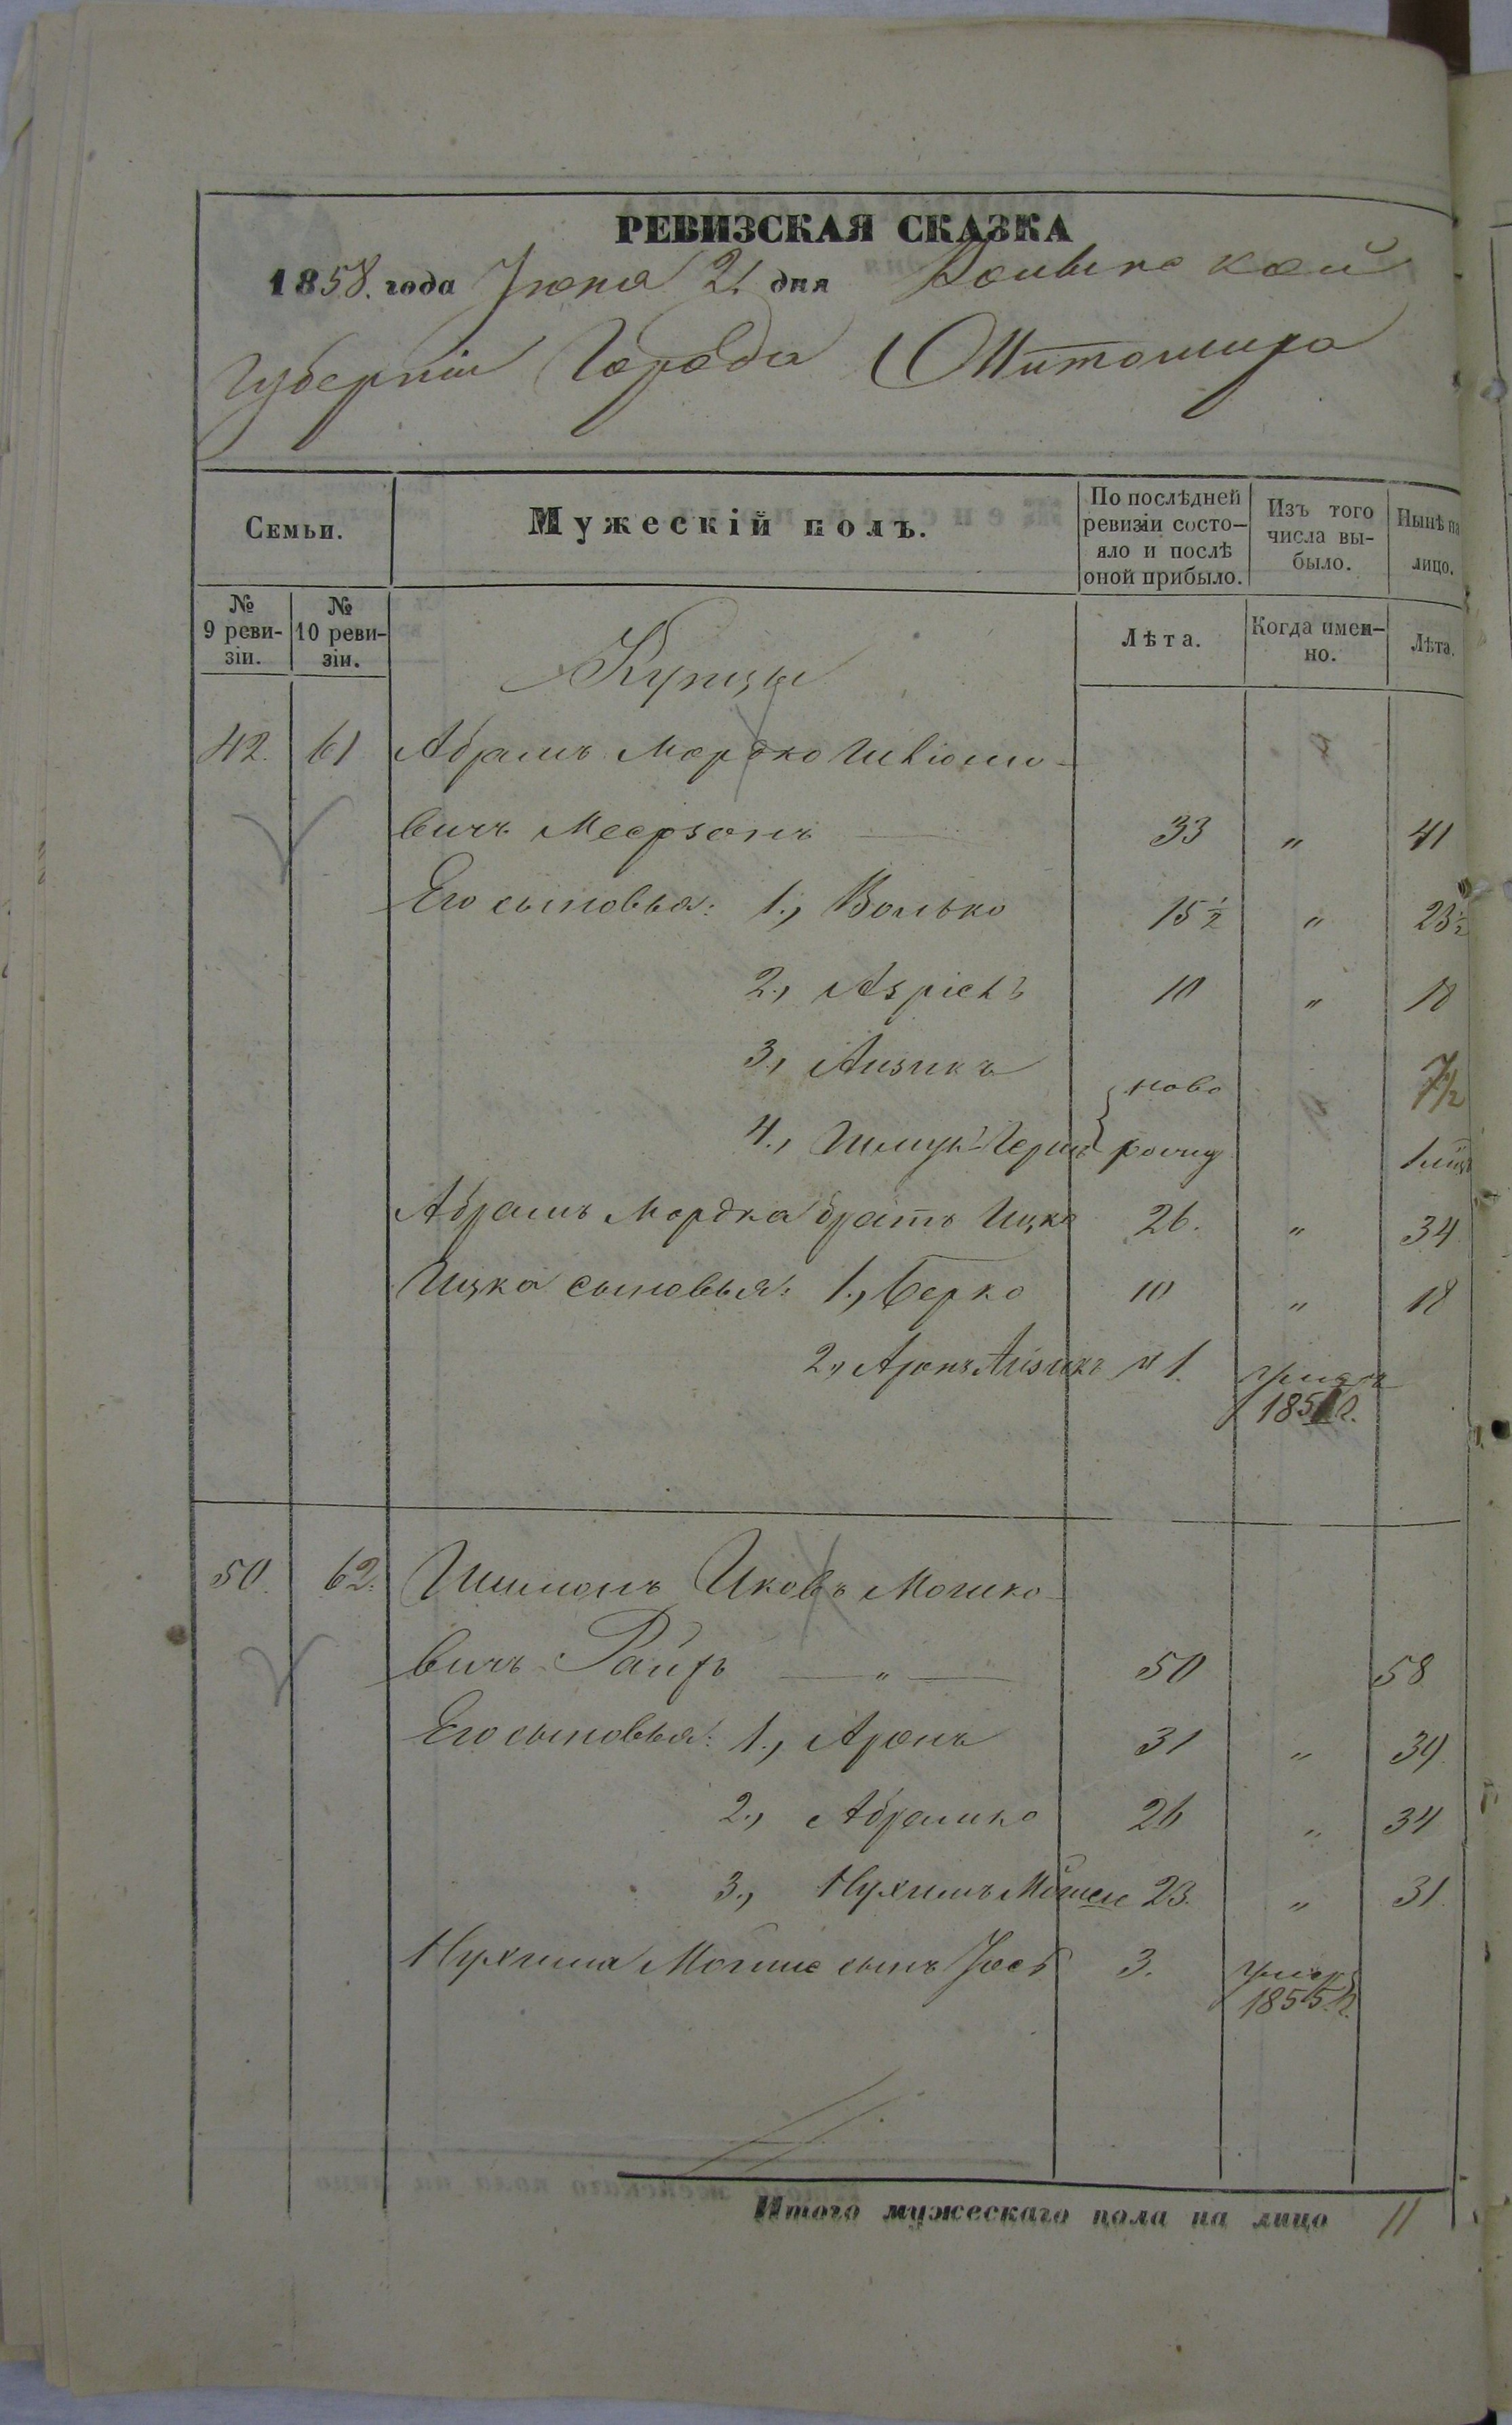 РЕВИЗСКАЯ СКАЗКА
1858. года Іюня 2. дня Волынской
Губерніи Города Житомира
Семьи.
Мужескій полъ.
По послѣдней ревизіи состо-яло и послѣ оной прибыло.
Изъ того числа вы-было.
Нынѣ на лицо.
№ 9 реви-зіи.
№ 10 реви-зіи.
Лѣта.
Когда имен-но.
Лѣта.
Купцы
42. 61 Абрамъ Мордко
вичъ Меерзонъ 33 " 41
Его сыновья: 1., Волько 15 ½ " 23 ½
2., Азріель 10 " 18
3., Аизикъ ново 7½
4., Шмуль Герш рожд 1 мѣц
Абрамъ Мордка братъ Ицко 26. " 34
Ицка сыновья: 1., Берко 10 " 18
2., Аронъ Аизикъ 1. умеръ
185 г.
50. 62. Шимонъ Яковъ Мошко
вичъ " 50 58
Его сыновья: 1., Аронъ 31 " 39.
2., Абрамко 26 " 34
3., Нухимъ Мошеи 23. " 31.
Нухима Мошие сынъ Іось 3. умеръ
1855 г.
Итого мужескаго пола на лицо 11